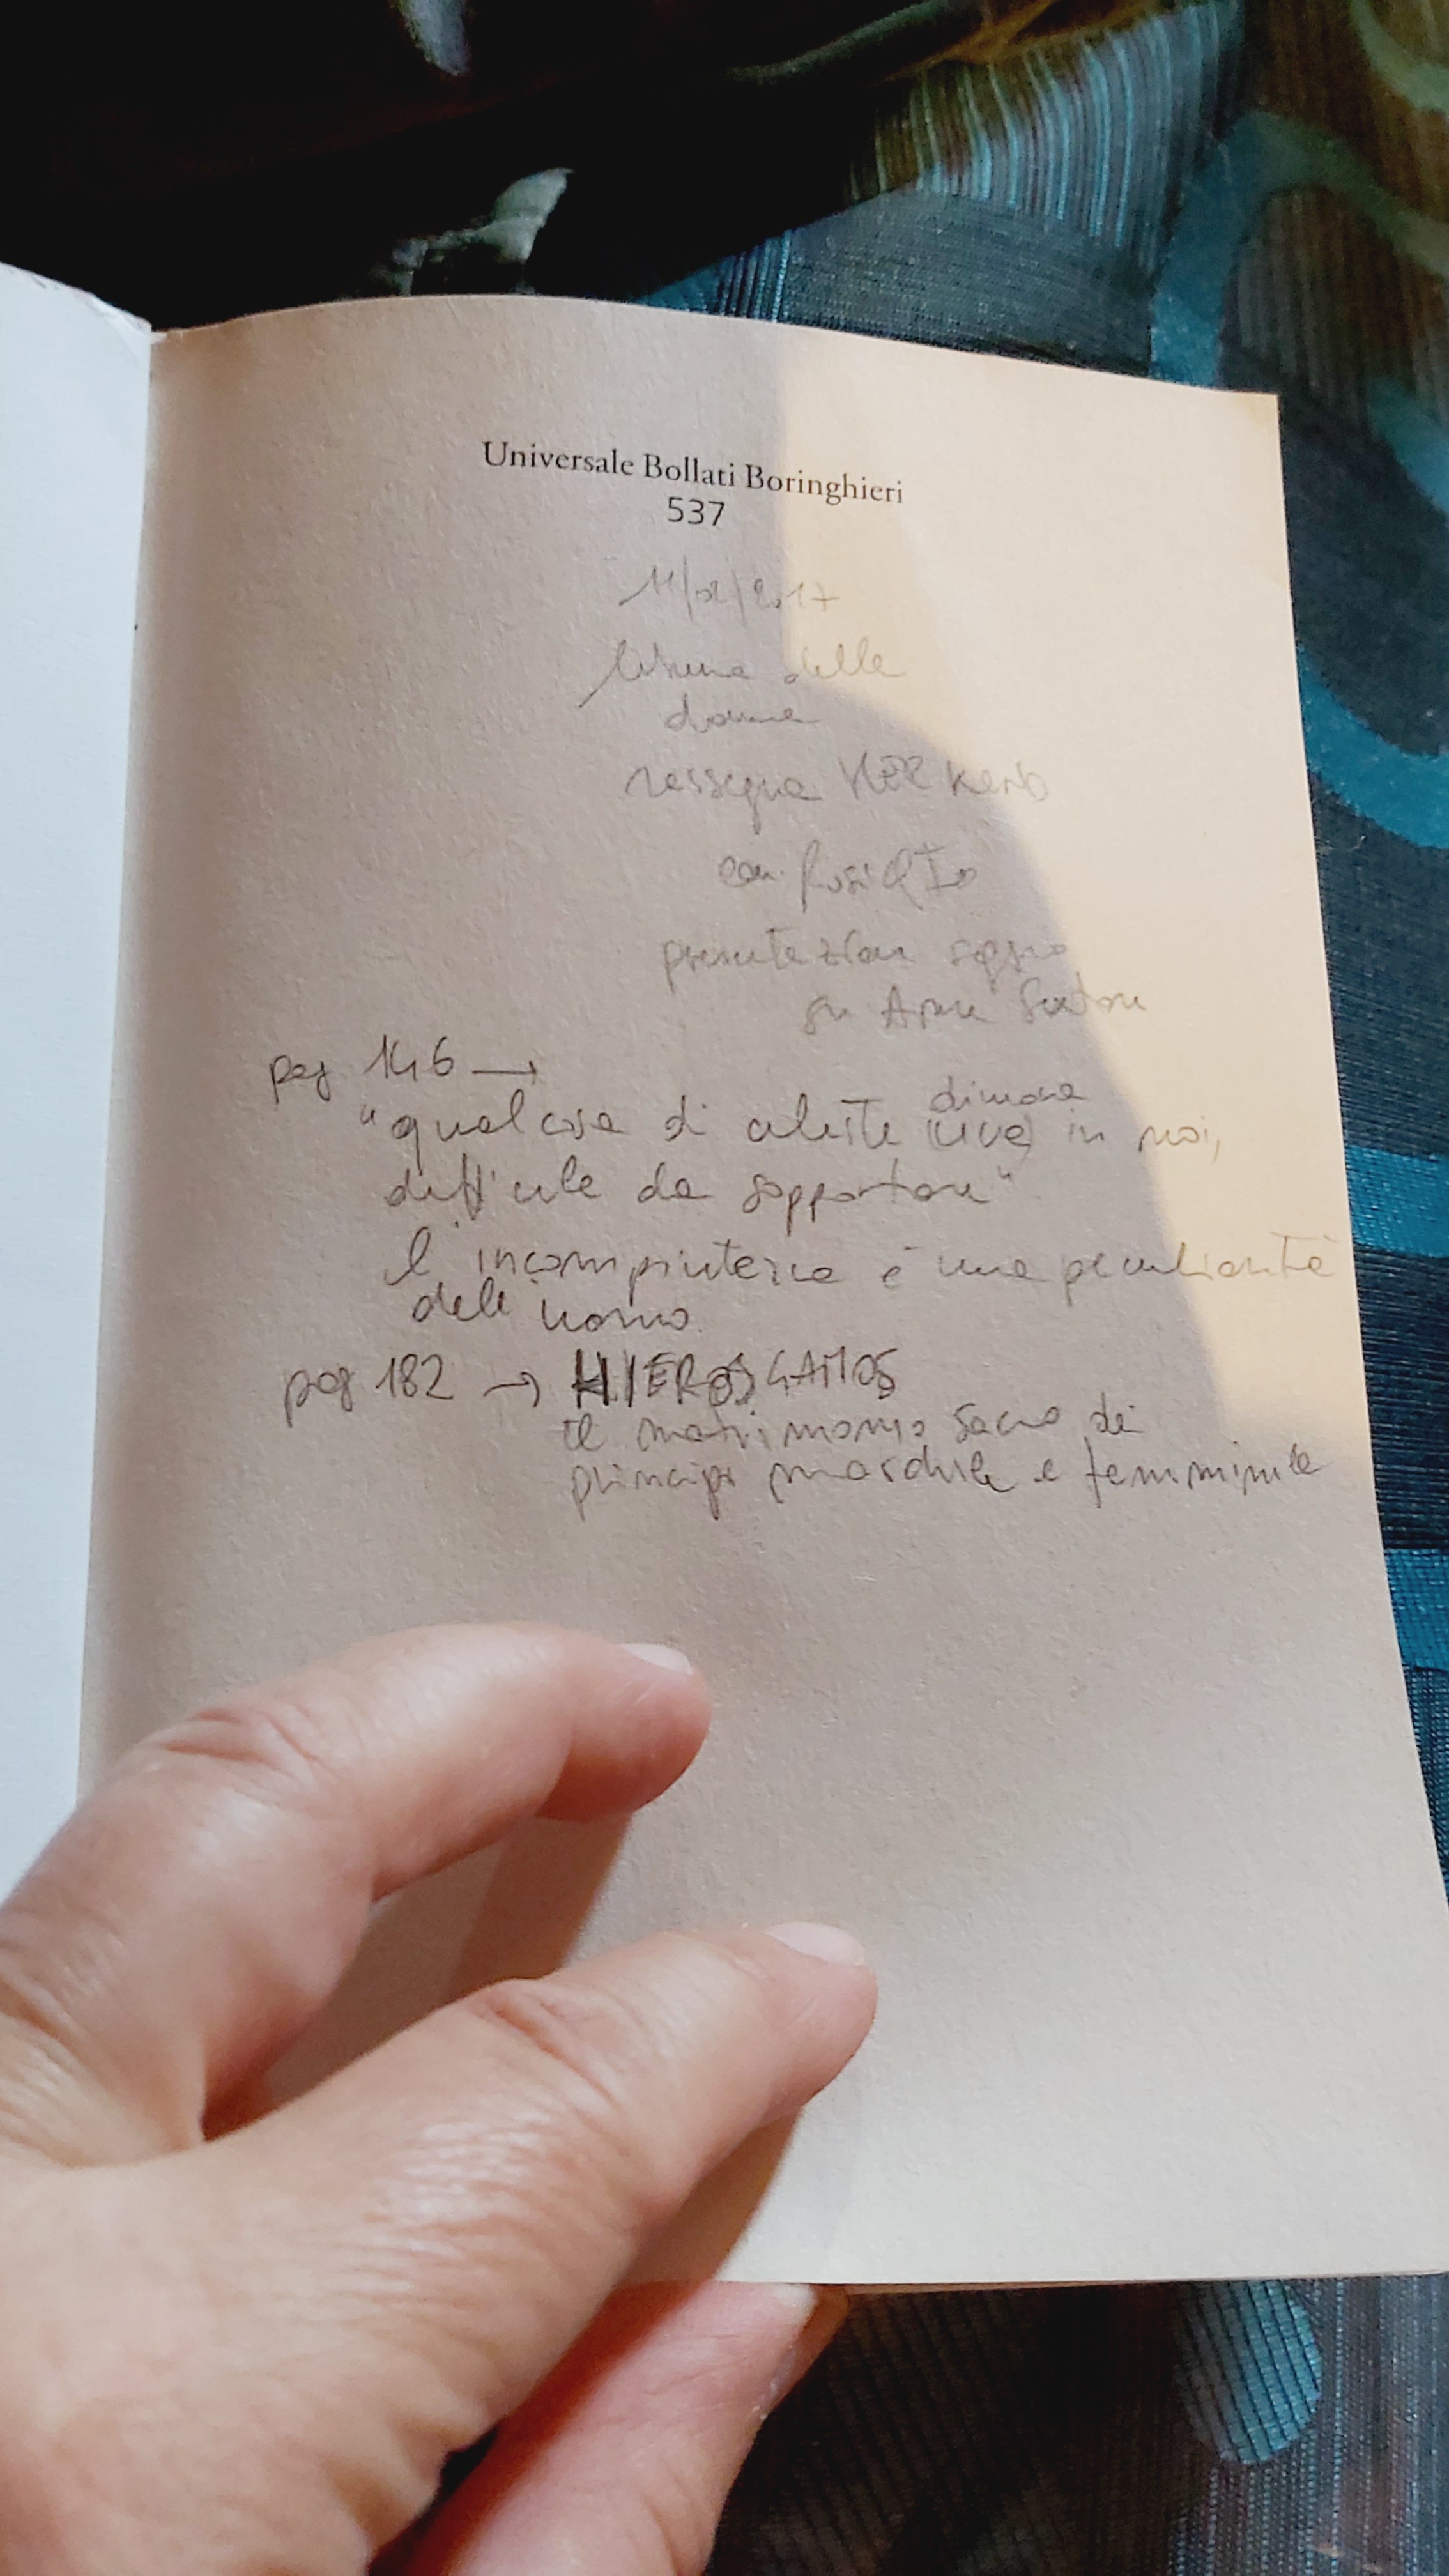 Universale Bollati Boringhieri
537
11/02/2017
libreria delle
donne
rassegna
con
presentazione saggio
su Anne Sexton
pag 146 →
dimora
"qualcosa di celeste (vive) in noi,
difficile da sopportare"
l'incompiutezza è una peculiarità
dell'uomo.
pag 182 → HIEROS GAMOS
il matrimonio sacro dei
principi maschile e femminile